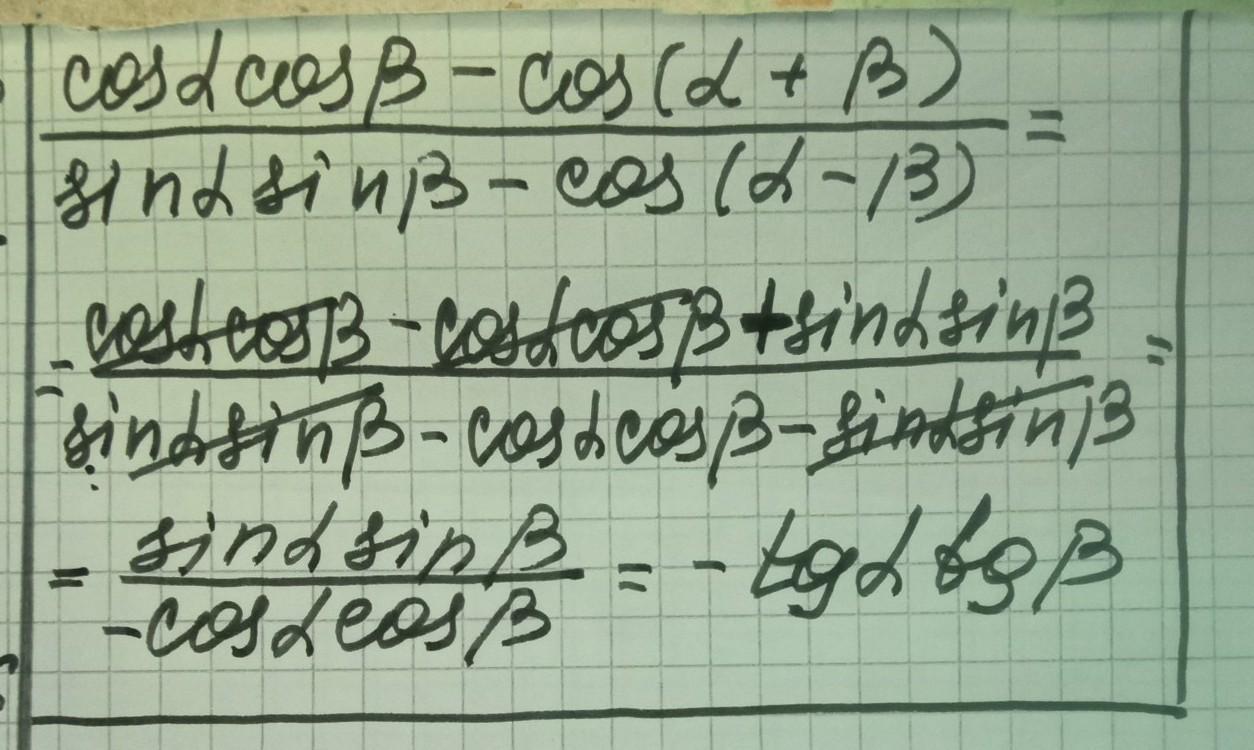 cosα cosβ - cos(α + β)
=
sinα sinβ - cos(α - β)
cosα cosβ - cosα cosβ + sinα sinβ
= =
sinα sinβ - cosα cosβ - sinα sinβ
sinα sinβ
= = - tgα tgβ
-cosα cosβ